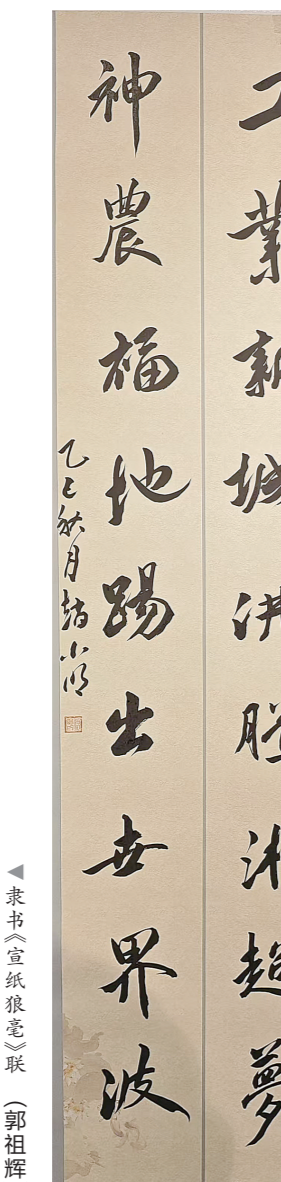 工業新城湘超夢
神農福地踢出世界波
乙巳秋月小明
◀隶书《宣纸狼毫》联 （郭祖辉